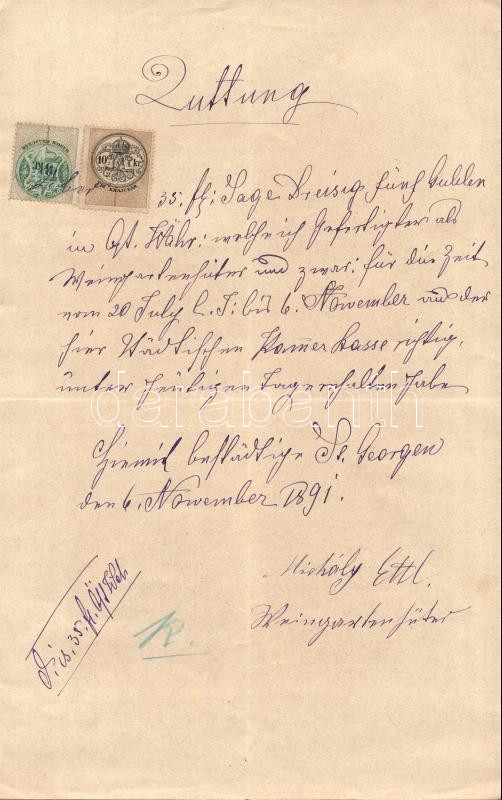 Quttung
Über 35. fl: Sage Dreisig fünf Gulden
in Öst. Währ: welche ich Gefertigter als
Weingartenhüter und zwar: für die Zeit
vom 20 July l. J: bis 6. November aus der
hier Städtischen Kamer Kasse richtig,
unter heutigen Tage erhalten habe
Hiemit bestädtige St. Georgen
den 6. November 1891.
Michály Ettl.
Weingartenhüter
35. fl.
K.
10
1 kr
darabanth